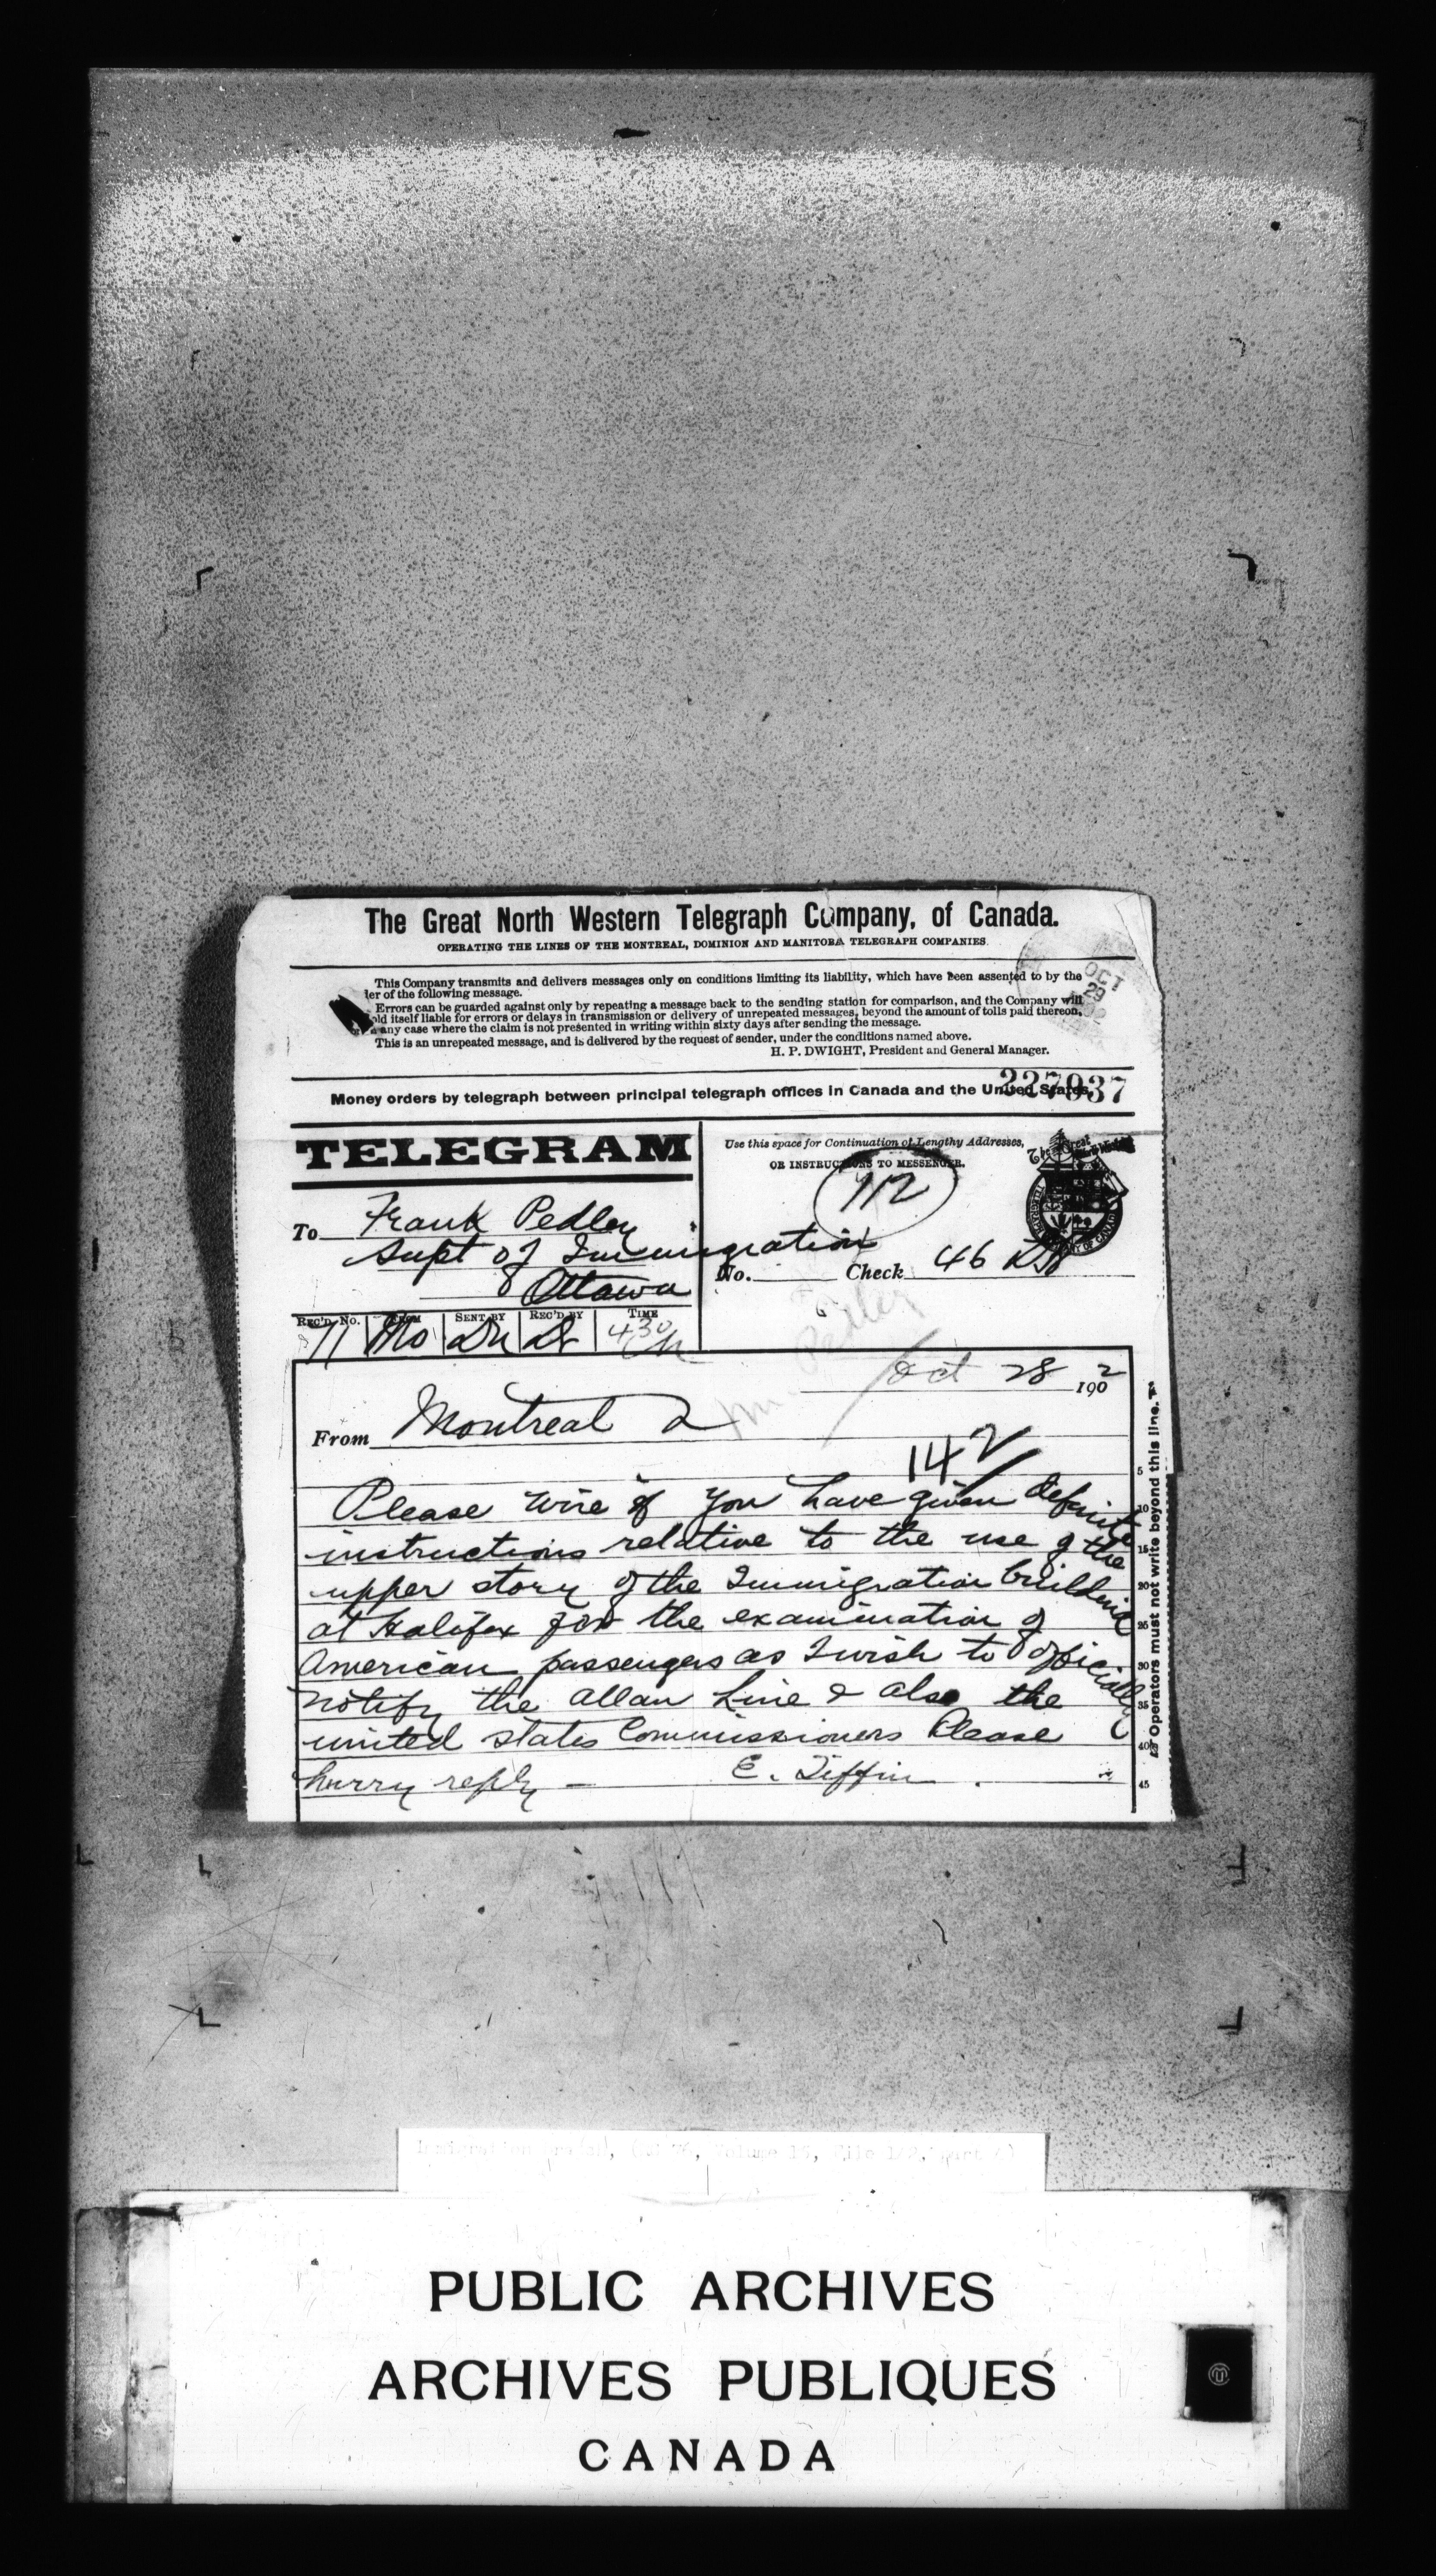 The Great North Western Telegraph Company, of Canada.
OPERATING THE LINES OF THE MONTREAL, DOMINION AND MANITOBA TELEGRAPH COMPANIES.
This Company transmits and delivers messages only on conditions limiting its liability, which have been assented to by the
der of the following message.
Errors can be guarded against only by repeating a message back to the sending station for comparison, and the Company will
old itself liable for errors or delays in transmission or delivery of unrepeated messages, beyond the amount of tolls paid thereon,
any case where the claim is not presented in writing within sixty days after sending the message.
This is an unrepeated message, and is delivered by the request of sender, under the conditions named above.
H. P. DWIGHT, President and General Manager.
OCT
29
Money orders by telegraph between principal telegraph offices in Canada and the United States.
227937
TELEGRAM
Use this space for Continuation of Lengthy Addresses,
OR INSTRUCTIONS TO MESSENGER.
112
The Great
To Frank Pedley
Supt of Immigration
Ottawa
No. Check 46
REC'D No. FROM SENT BY REC'D BY TIME
71 Mo 430
Pedley
Oct 28 1902
From Montreal 2
142
Please wire if you have given definite
instructions relative to the use of the
upper story of the Immigration building
at Halifax for the examination of
American passengers as I wish to officially
notify the Allan Line & also the
united states Commissioners Please
hurry reply — E. Tiffin
5
10
15
20
25
30
35
40
45
Operators must not write beyond this line.
PUBLIC ARCHIVES
ARCHIVES PUBLIQUES
CANADA